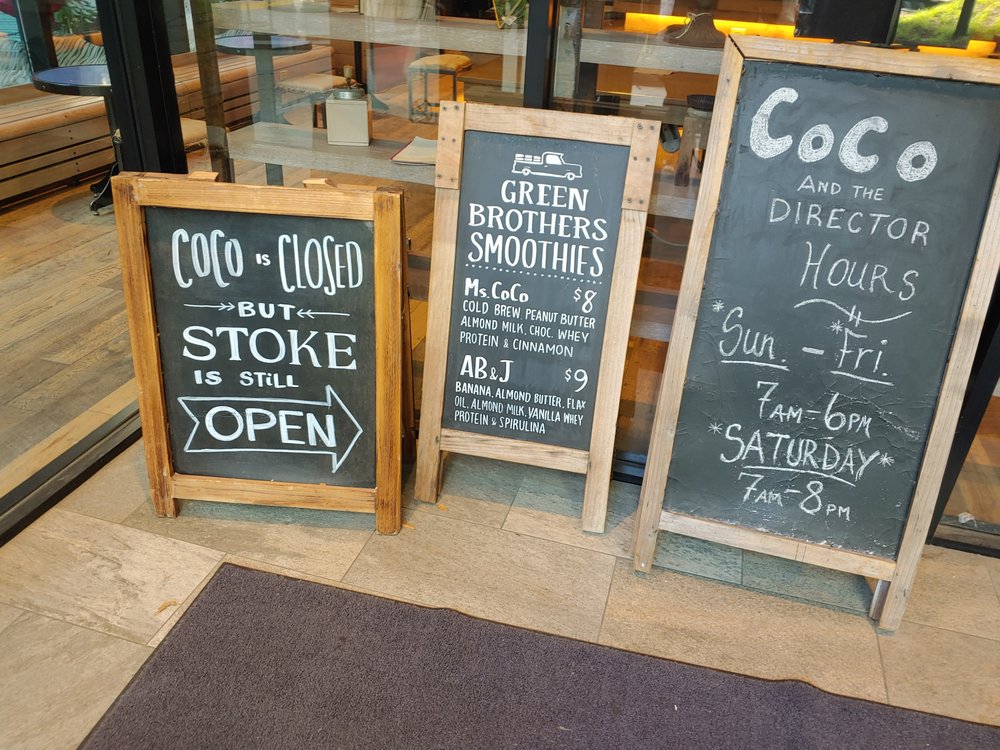 COCO IS CLOSED
BUT
STOKE
IS STILL
OPEN
GREEN
BROTHERS
SMOOTHIES
Ms. CoCo $8
COLD BREW, PEANUT BUTTER
ALMOND MILK, CHOC. WHEY
PROTEIN & CINNAMON
AB & J $9
BANANA, ALMOND BUTTER, FLAX
OIL, ALMOND MILK, VANILLA WHEY
PROTEIN & SPIRULINA
CoCo
AND THE
DIRECTOR
HOURS
*Sun. - *Fri.
7AM-6PM
*SATURDAY*
7AM-8PM